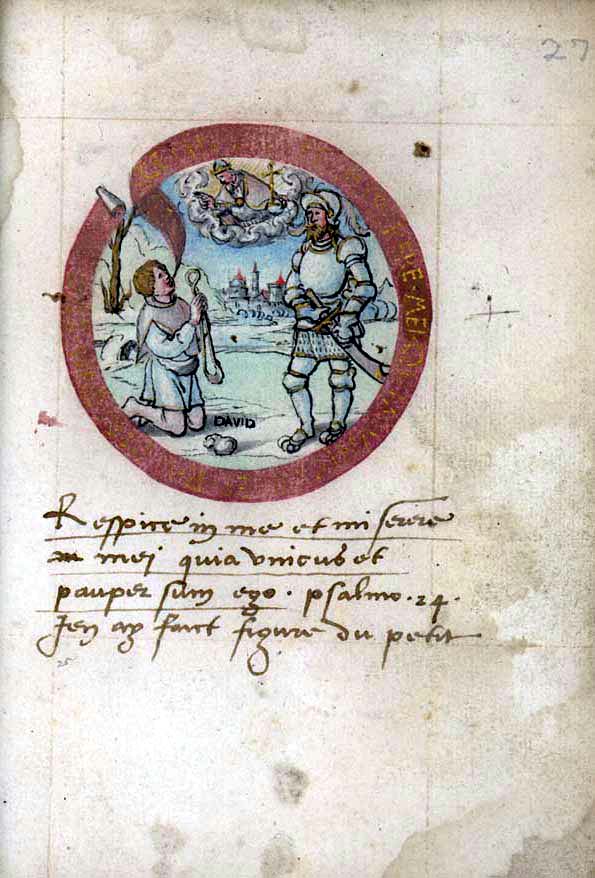 27
DAVID
Respice in me et miserere
mei quia unicus et
pauper sum ego. psalmo. 24.
Jen ay faict figure du petit